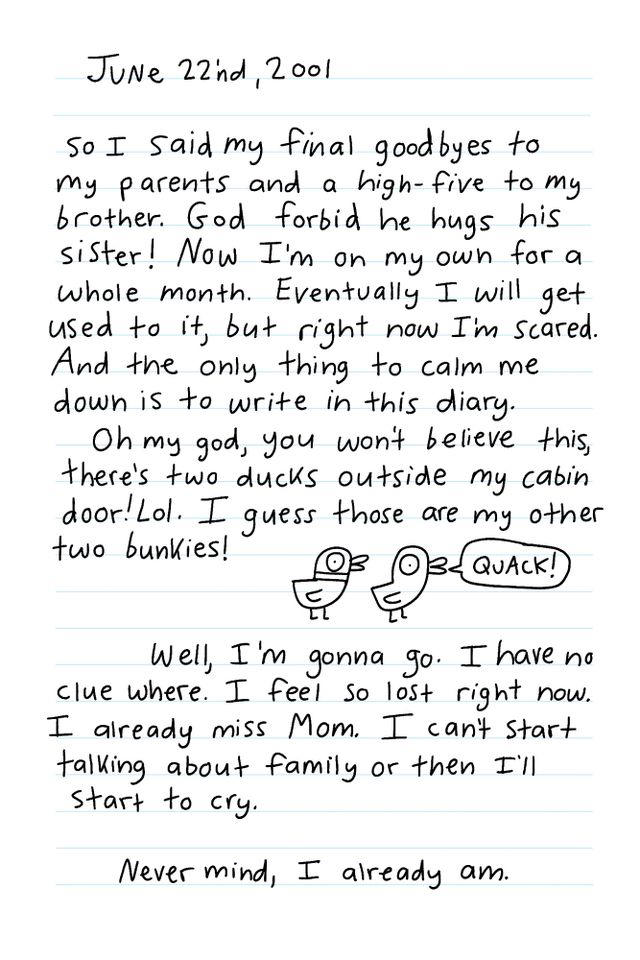 JUNE 22nd, 2001
so I said my final goodbyes to
my parents and a high-five to my
brother. God forbid he hugs his
sister! Now I'm on my own for a
whole month. Eventually I will get
used to it, but right now I'm scared.
And the only thing to calm me
down is to write in this diary.
Oh my god, you won't believe this,
there's two ducks outside my cabin
door! Lol. I guess those are my other
two bunkies!
QUACK!
Well, I'm gonna go. I have no
clue where. I feel so lost right now.
I already miss Mom. I can't start
talking about family or then I'll
start to cry.
Never mind, I already am.